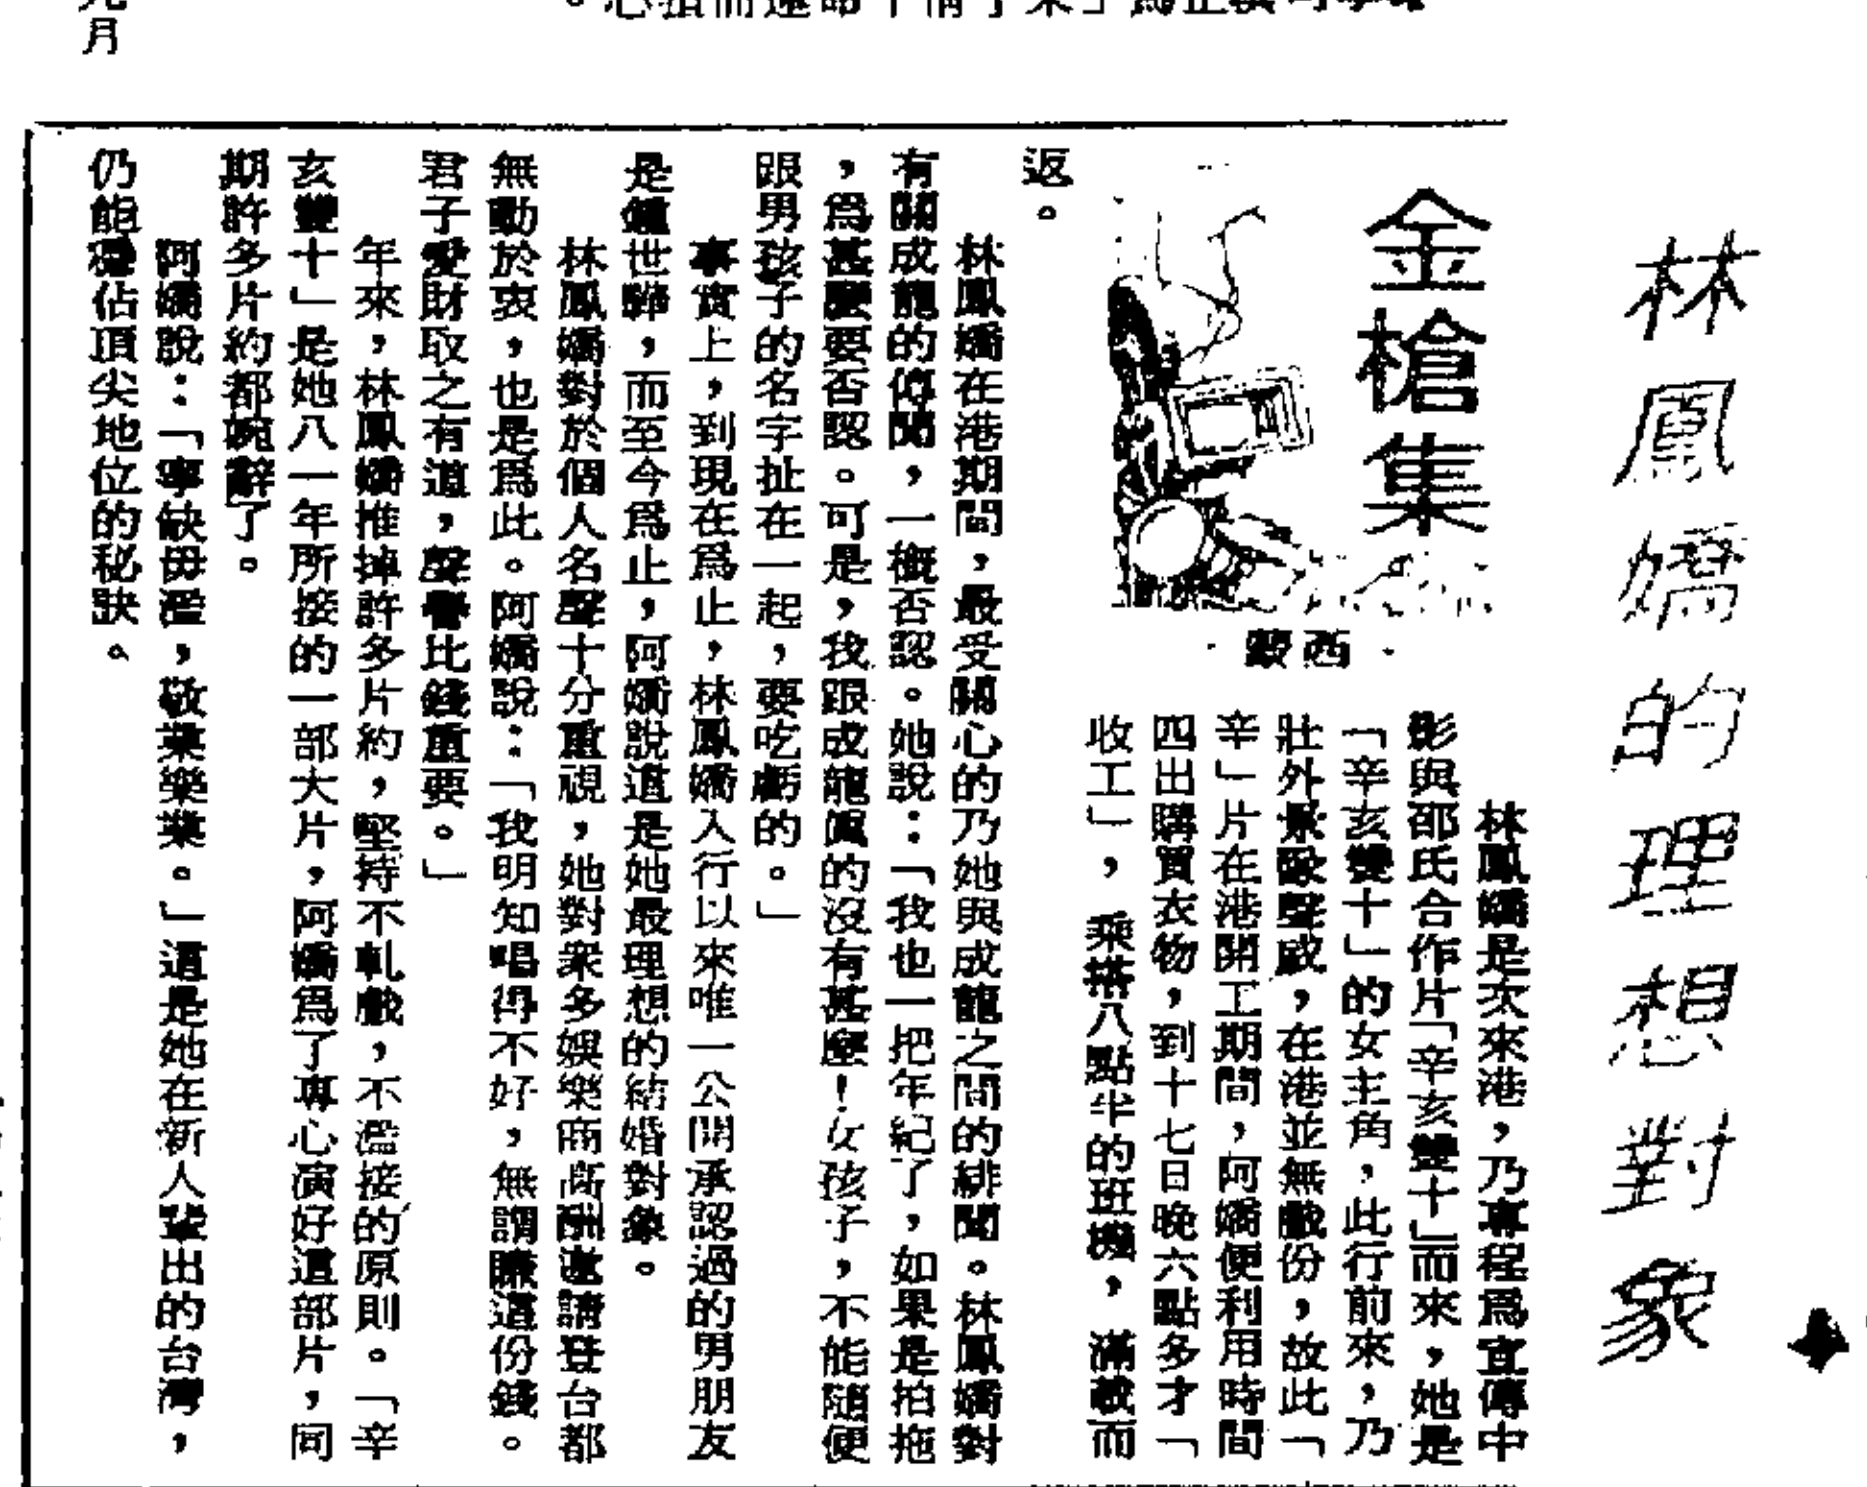 月
林鳳嬌的理想對象
金槍集
·西蒙·
林鳳嬌是次來港，乃專程爲宣傳中
影與邵氏合作片「辛亥雙十」而來，她是
「辛亥雙十」的女主角，此行前來，乃
壯外景隊聲威，在港並無戲份，故此「
辛」片在港開工期間，阿嬌便利用時間
四出購買衣物，到十七日晚六點多才「
收工」，乘搭八點半的班機，滿載而
返。
林鳳嬌在港期間，最受關心的乃她與成龍之間的緋聞。林鳳嬌對
有關成龍的傳聞，一概否認。她說：「我也一把年紀了，如果是拍拖
，爲甚麼要否認。可是，我跟成龍眞的沒有甚麼！女孩子，不能隨便
跟男孩子的名字扯在一起，要吃虧的。」
事實上，到現在爲止，林鳳嬌入行以來唯一公開承認過的男朋友
是鍾世驊，而至今爲止，阿嬌說這是她最理想的結婚對象。
林鳳嬌對於個人名聲十分重視，她對衆多娛樂商高酬邀請登台都
無動於衷，也是爲此。阿嬌說：「我明知唱得不好，無謂賺這份錢。
君子愛財取之有道，聲譽比錢重要。」
年來，林鳳嬌推掉許多片約，堅持不軋戲，不濫接的原則。「辛
亥雙十」是她八一年所接的一部大片，阿嬌爲了專心演好這部片，同
期許多片約都婉辭了。
阿嬌說：「寧缺毋濫，敬業樂業。」這是她在新人輩出的台灣，
仍能穩佔頂尖地位的秘訣。